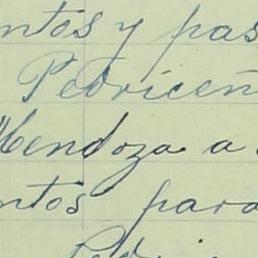 ntos y pas
Pedriceñ
Mendoza a
ntos para
Pedri